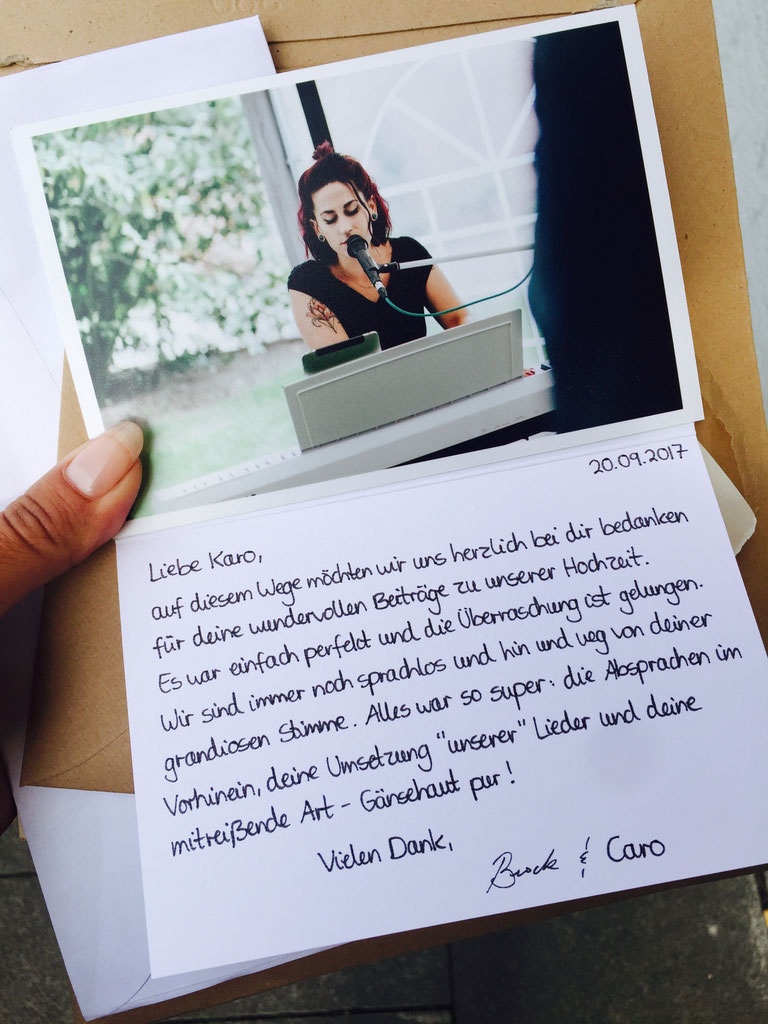 20.09.2017
Liebe Karo,
auf diesem Wege möchten wir uns herzlich bei dir bedanken
für deine wundervollen Beiträge zu unserer Hochzeit.
Es war einfach perfekt und die Überraschung ist gelungen.
Wir sind immer noch sprachlos und hin und weg von deiner
grandiosen Stimme. Alles war so super: die Absprachen im
Vorhinein, deine Umsetzung "unserer" Lieder und deine
mitreißende Art - Gänsehaut pur!
Vielen Dank,
Brock & Caro